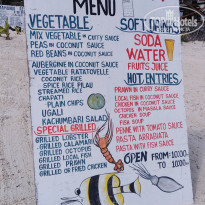 MENU
VEGETABLE
MIX VEGETABLE IN CURRY SAUCE
PEAS IN COCONUT SAUCE
RED BEANS IN COCONUT SAUCE
AUBERGINE IN COCONUT SAUCE
VEGETABLE RATATOVELLE
COCONUT RICE
SPICE RICE PILAU
STREAMED RICE
CHAPATI
PLAIN CHIPS
UGALI
KACHUMBARI SALAD
SPECIAL GRILLED
GRILLED LOBSTER
GRILLED CALAMARI
GRILLED OCTOPUS
GRILLED LOCAL FISH
GRILLED PRAWN
GRILLED OR FRIED CHICKEN
SOFT
SODA
WATER
FRUITS JUICE
HOT ENTRIES
PRAWN IN CURRY SAUCE
LOCAL FISH IN COCONUT SAUCE
CHICKEN IN COCONUT SAUCE
OCTOPUS IN MASALA SAUCE
CHICKEN SOUP
FISH SOUP
PENNE WITH TOMATO SAUCE
PASTA ARRABIATA
PASTA WITH FISH SAUCE
OPEN FROM 10:00
TO 10:00